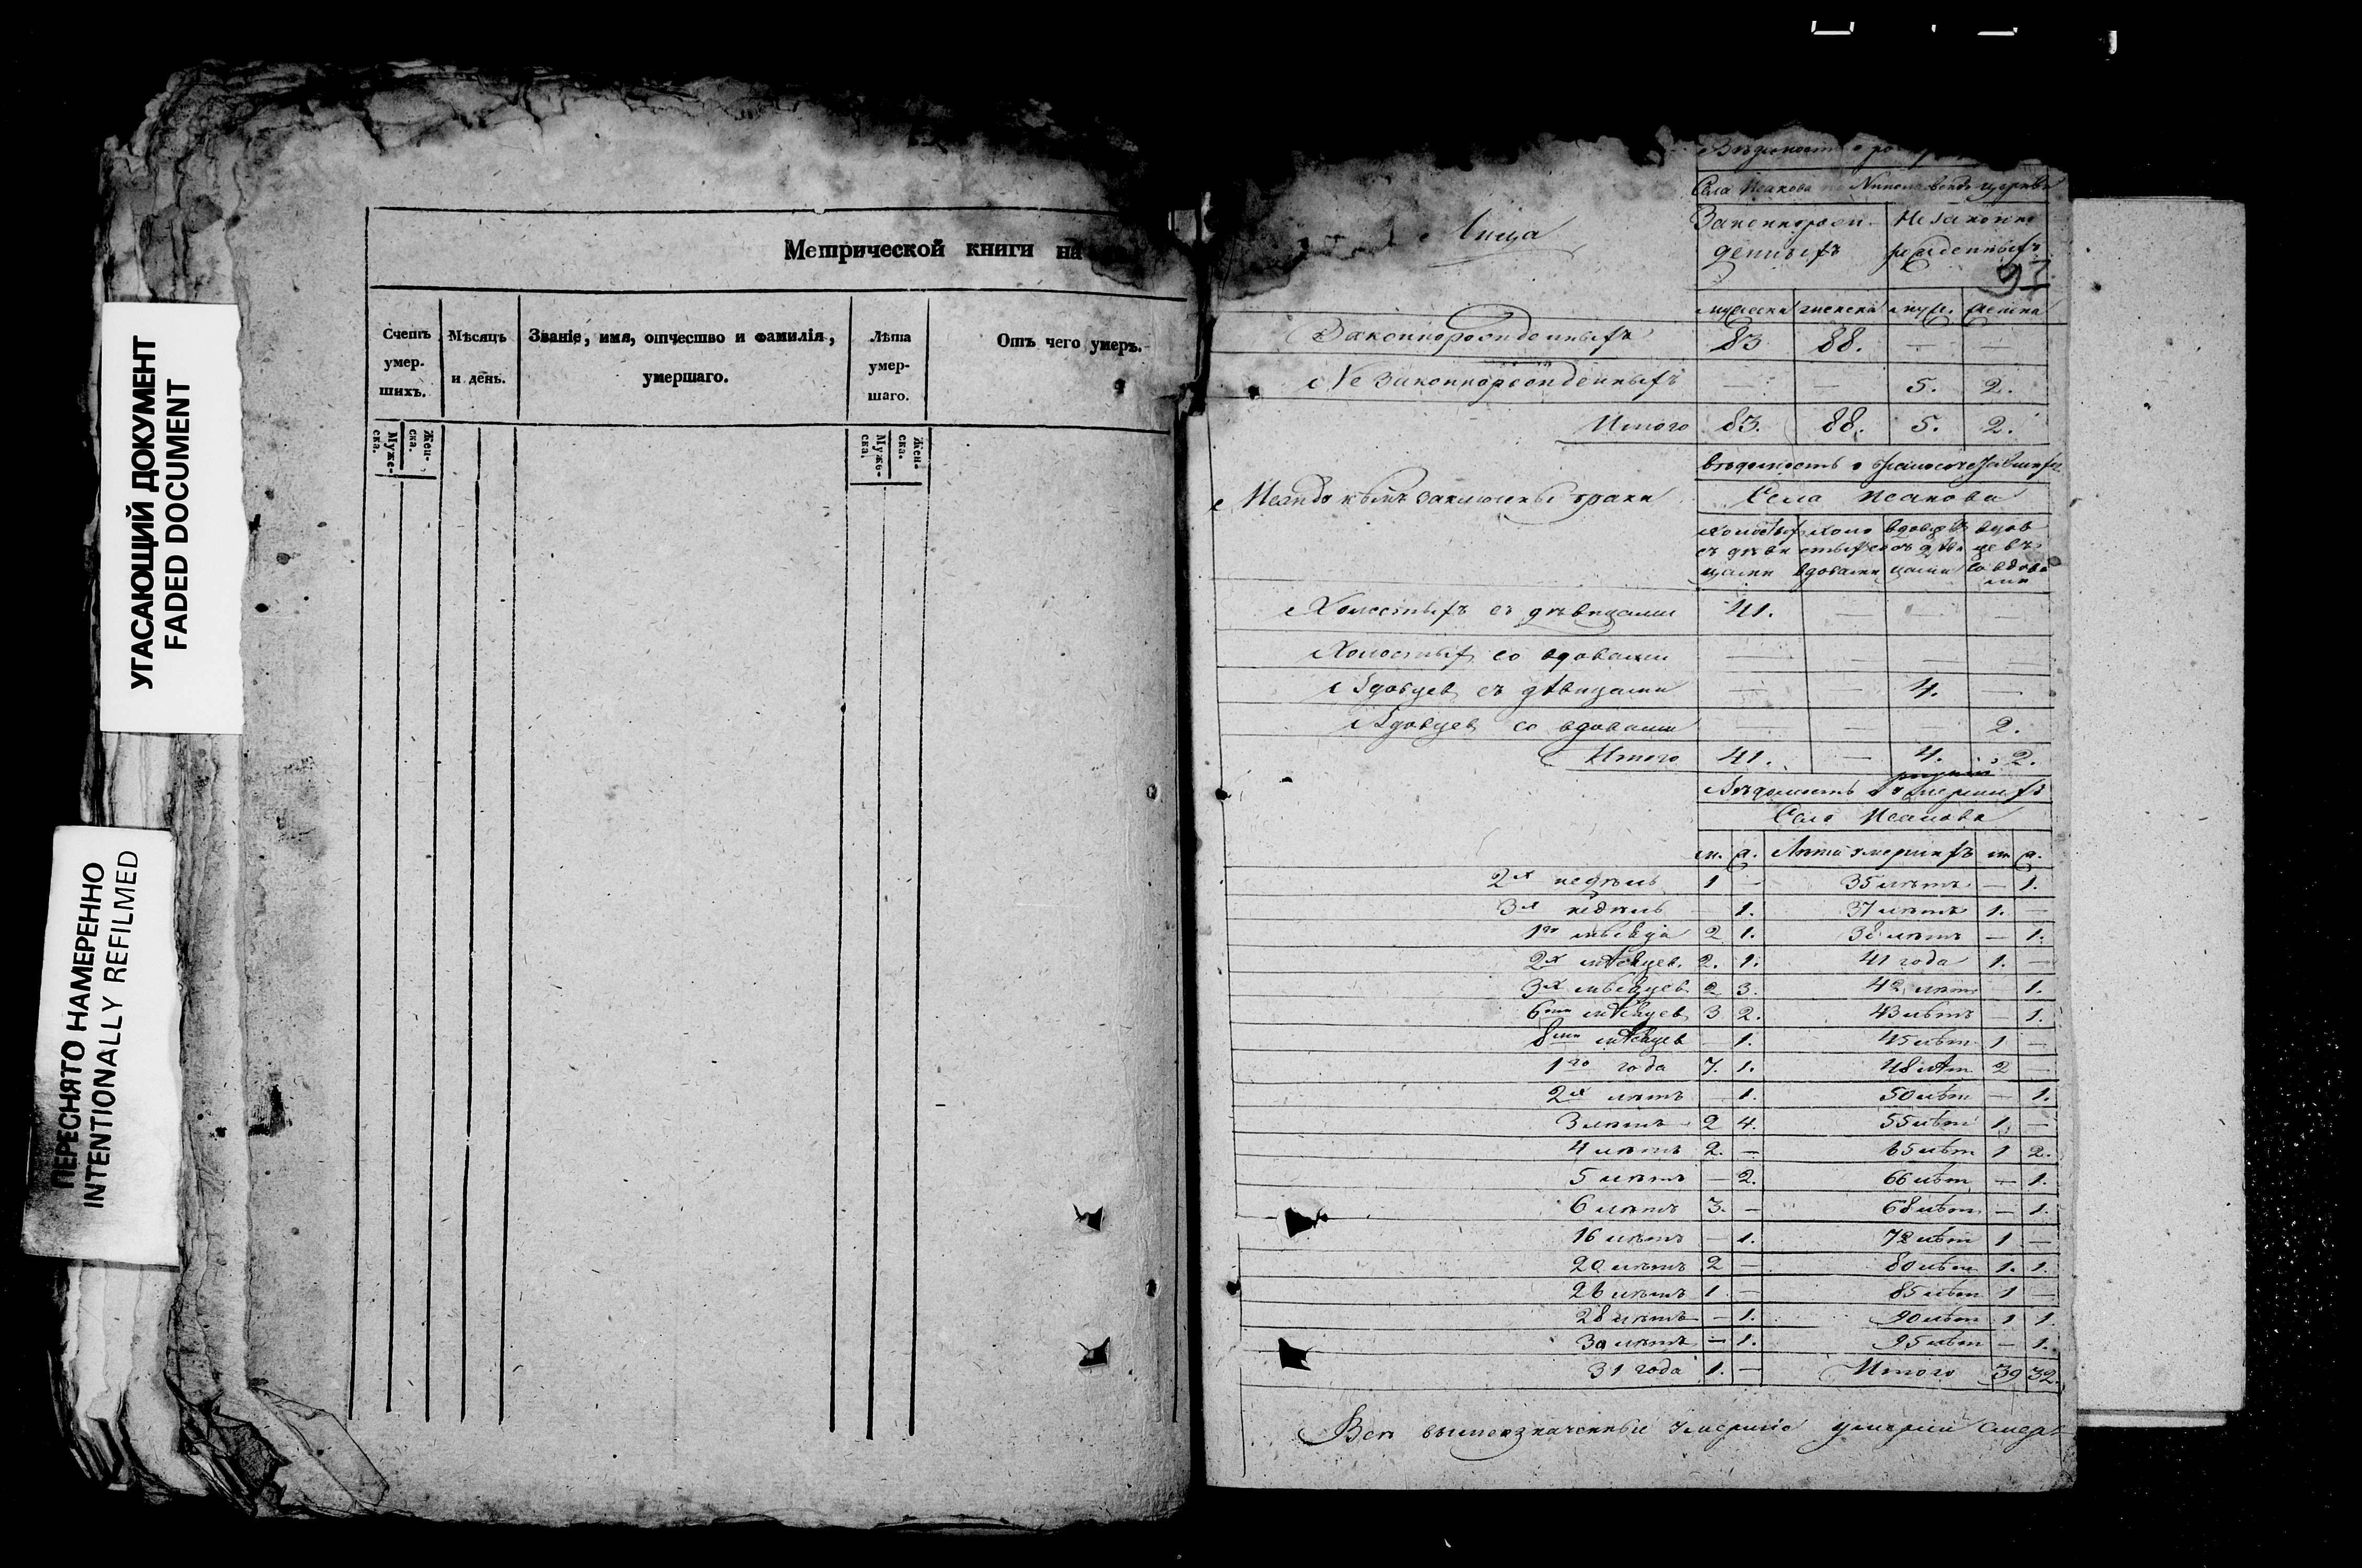 УГАСАЮЩИЙ ДОКУМЕНТ
FADED DOCUMENT
ПЕРЕСНЯТО НАМЕРЕННО
INTENTIONALLY REFILMED
Метрической книги на
Счетъ умерших. Мѣсяцъ и день. Званіе, имя, отчество и фамилія, умершаго. Лѣта умершаго. Отъ чего умеръ.
Муже-ска. Жен-ска. Мужь-ска. Жен-ска.
Вѣдомость о
Села Исакова Николаевской церкви
Лица
Законнорожденныхъ Незаконнорожденныхъ
97
мужеска женска муже. женска
Законнорожденныхъ 83 88. — —
Незаконнорожденныхъ — — 5. 2.
Итого 83. 88. 5. 2.
Вѣдомость о бракосочетавшихся
Между кѣмъ заключены браки
Села Исакова
Холостыхъ съ дѣвицами холостыхъ со вдовами вдовцевъ съ дѣвицами вдовцевъ со вдовами
Холостыхъ съ дѣвицами 41. — — —
Холостыхъ со вдовами — — — —
Вдовцев съ дѣвицами — — 4. —
Вдовцев со вдовами — — — 2.
Итого 41. — 4. 2.
Вѣдомость о умершихъ
Села Исакова
м. ж. Лѣта умершихъ м. ж.
2х недѣль 1 — 35 лѣтъ — 1.
3х недѣль — 1. 37 лѣтъ 1. —
1го мѣсяца 2 1. 38 лѣтъ — 1.
2х мѣсяцев. 2. 1. 41 года 1. —
3х мѣсяцев 2 3. 42 лѣтъ 1.
6ти мѣсяцев 3 2. 43 лѣтъ — 1.
8ми мѣсяцев — 1. 45 лѣт 1 —
1го года 7. 1. 48 лѣт 2 —
2х лѣтъ — 1. 50 лѣт — 1.
3 лѣтъ 2 4. 55 лѣт 1. —
4 лѣтъ 2. — 65 лѣт 1 2.
5 лѣтъ — 2. 66 лѣт — 1.
6 лѣтъ 3. — 68 лѣт — 1.
16 лѣтъ — 1. 72 лѣт 1 —
20 лѣтъ 2 — 80 лѣт 1. 1.
26 лѣтъ 1 — 85 лѣт 1 —
28 лѣтъ — 1. 90 лѣт 1 1.
30 лѣтъ — 1. 95 лѣт — 1.
31 года 1. — Итого 39 32.
Всѣ вышеозначенные умершіе умерли